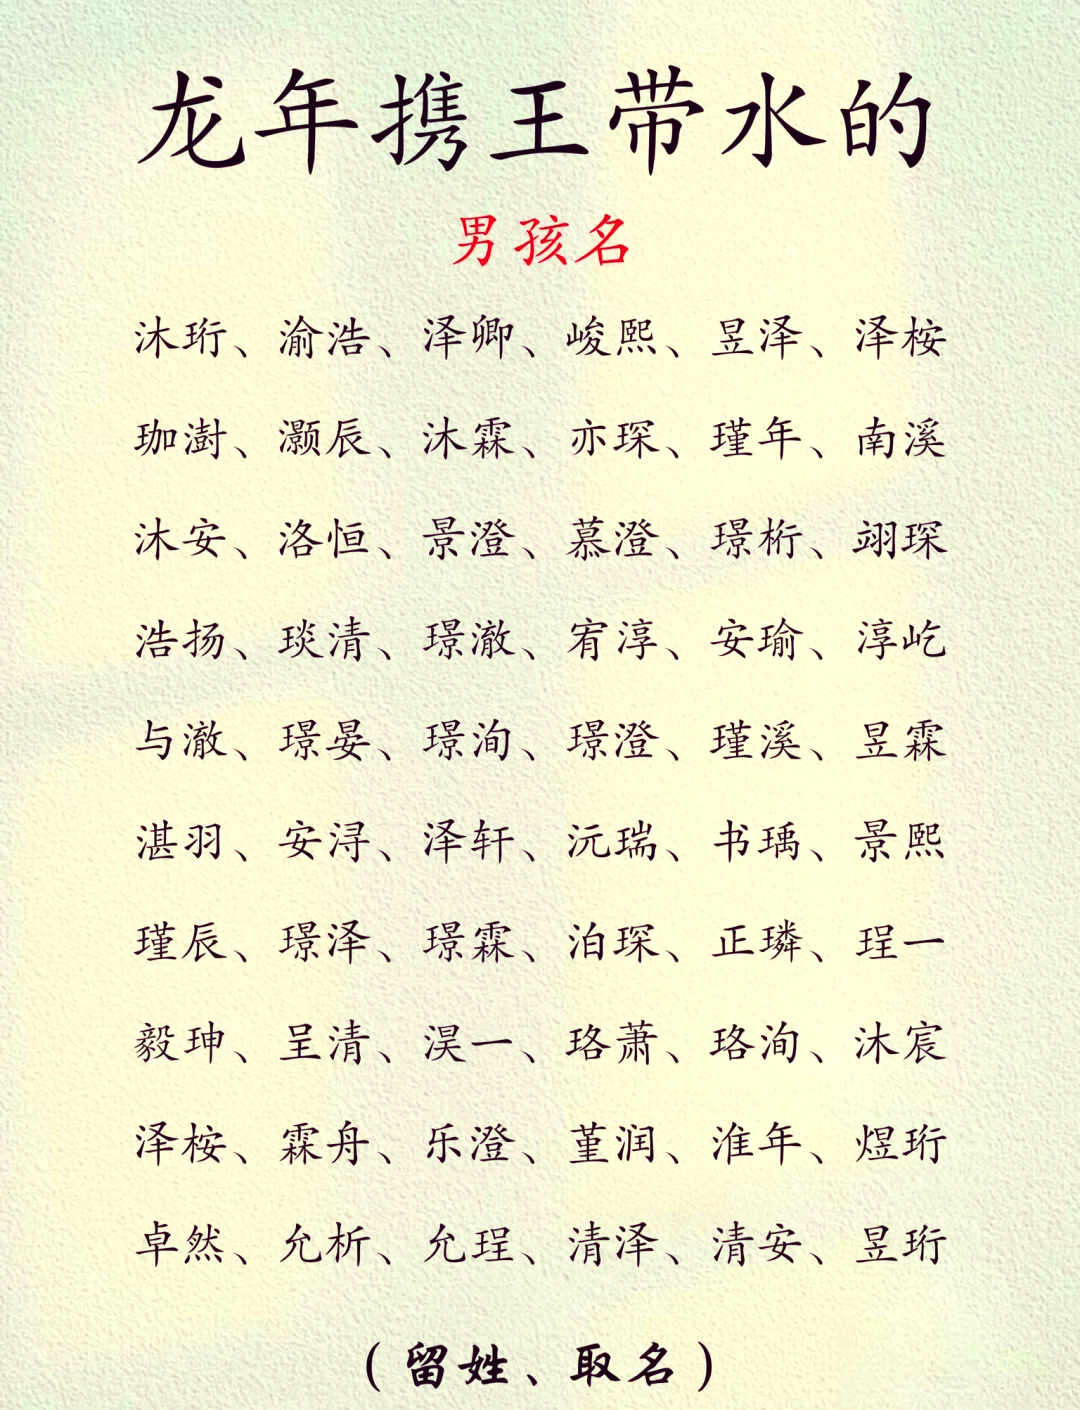 龙年携王带水的
男孩名
沐珩、渝浩、泽卿、峻熙、昱泽、泽桉
珈澍、灏辰、沐霖、亦琛、瑾年、南溪
沐安、洛恒、景澄、慕澄、璟桁、翊琛
浩扬、琰清、璟澈、宥淳、安瑜、淳屹
与澈、璟晏、璟洵、璟澄、瑾溪、昱霖
湛羽、安浔、泽轩、沅瑞、书瑀、景熙
瑾辰、璟泽、璟霖、泊琛、正璘、珵一
毅珅、呈清、淏一、珞萧、珞洵、沐宸
泽桉、霖舟、乐澄、堇润、淮年、煜珩
卓然、允析、允珵、清泽、清安、昱珩
（留姓、取名）